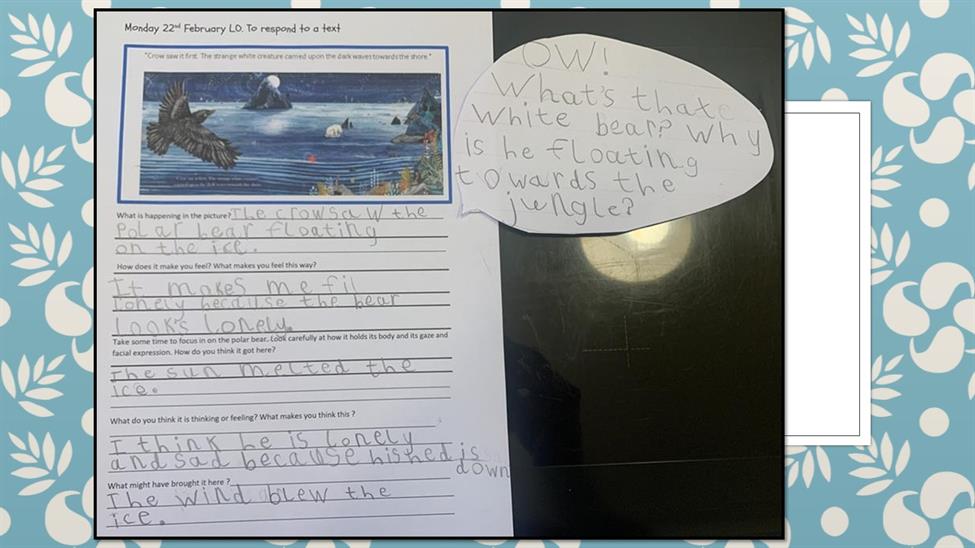 Monday 22nd February LO. To respond to a text
"Crow saw it first. The strange white creature carried upon the dark waves towards the shore."
What is happening in the picture? The crow saw the
Polar bear floating
on the ice.
How does it make you feel? What makes you feel this way?
It makes me fil
lonely because the bear
looks lonely.
Take some time to focus in on the polar bear. Look carefully at how it holds its body and its gaze and
facial expression. How do you think it got here?
The sun melted the
ice.
What do you think it is thinking or feeling? What makes you think this ?
I think he is lonely
and sad because hished is
down
What might have brought it here ?
The wind blew the
ice.
OW!
What's that
White bear? Why
is he floating
towards the
jungle?